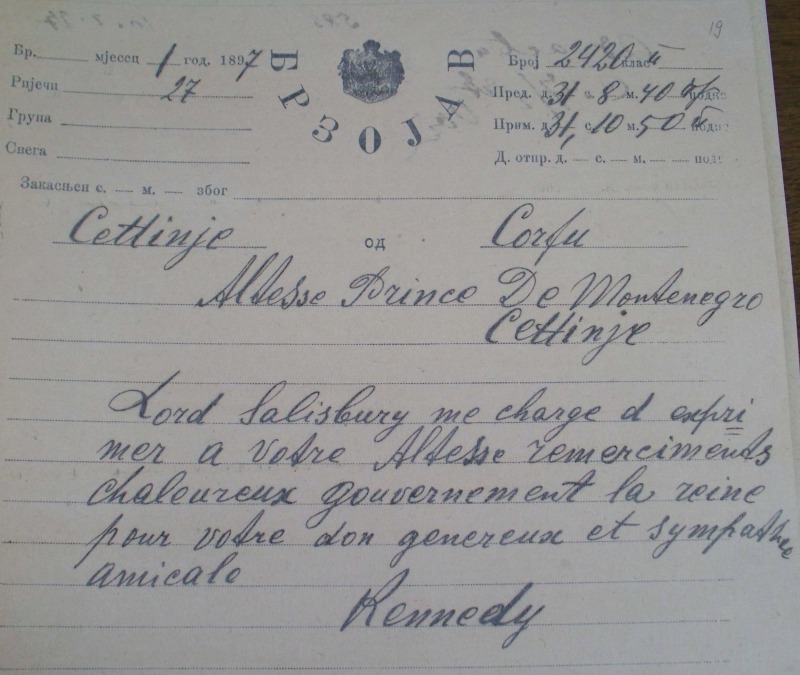 19
Бр. мјесец 1 год. 1897
БРЗОЈАВ
Број 2420 класа
Ријечи 27
Пред. д. 31 с. 8 м. 40 подне
Група
Прим. д. 31, с. 10 м. 50 подне
Свега
Д. отпр. д. — с. — м. — под
Закасњен с. — м. — због
Cettinje од Corfu
Altesse Prince De Montenegro
Cettinje
Lord Salisbury me charge d expri
mer a votre Altesse remerciments
chaleureux gouvernement la reine
pour votre don genereux et sympathie
amicale
Kennedy